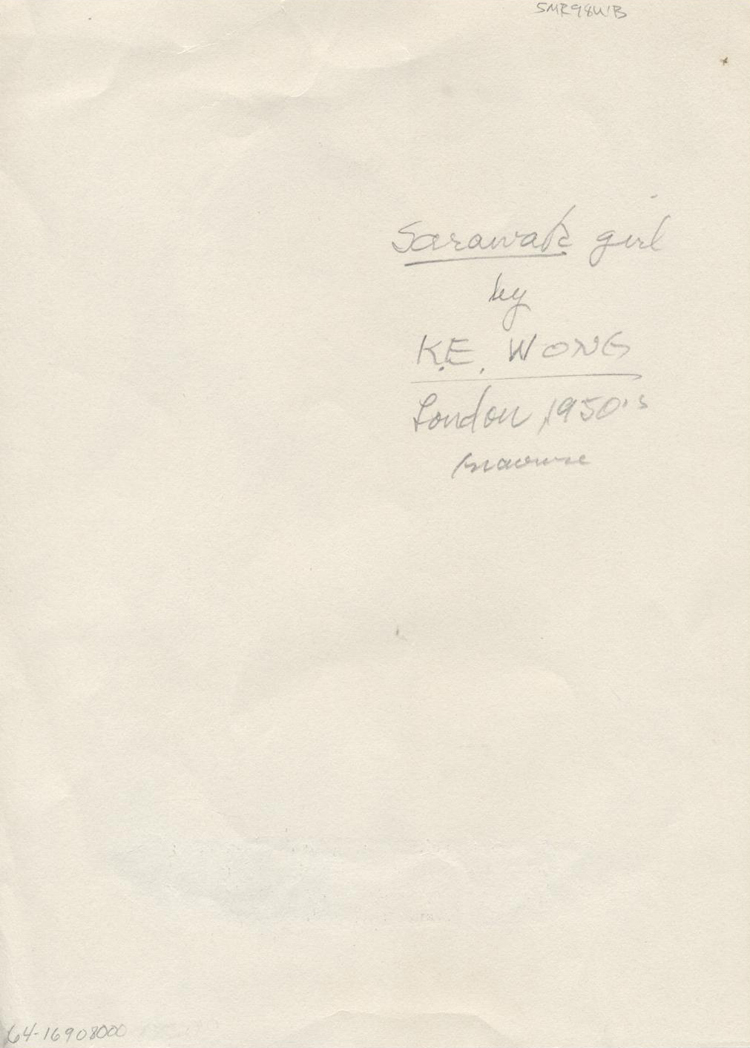 SMR98WB
Sarawak girl
by
K.E. WONG
London 1950's
64-16908000